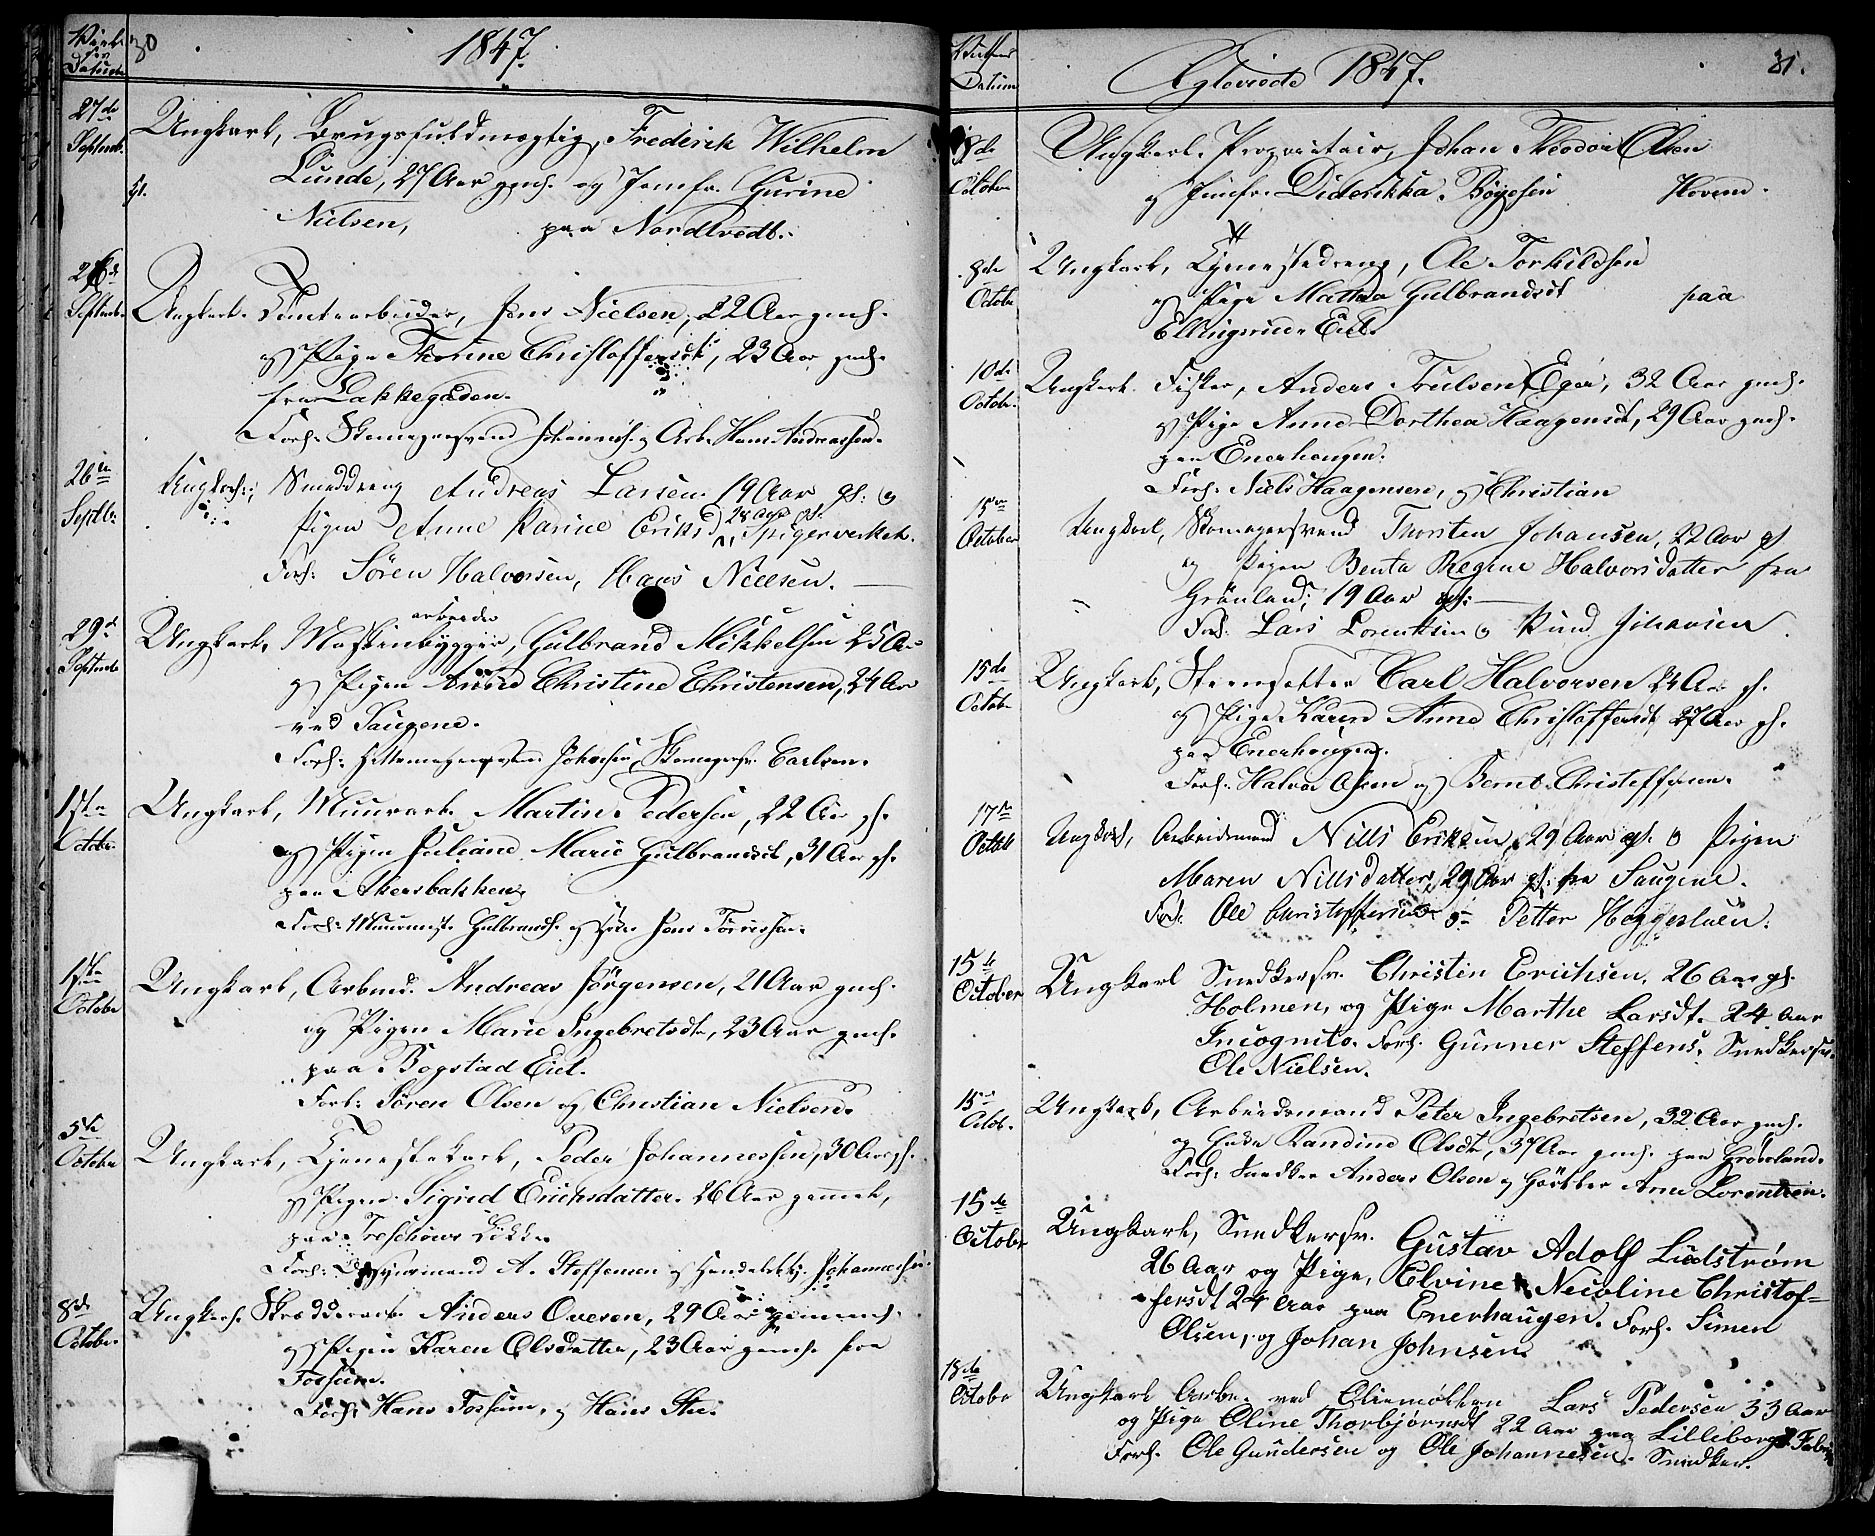 30
1847.
27de Septemb.
Ungkarl, Brugsfuldmægtig, Frederik Wilhelm
Lunde, 27 Aar gml. og Jomfr. Gurine
Nielsen, paa Nordtvedt.
26de Septembr.
Ungkarl. Jens Nielsen, 22 Aar gml.
og Pige Thorine Christoffersdt, 23 Aar gml.
fra Lakkegaden.
Forl: Skomagersvend Johannes. og Arb. Hans Andreassen.
26de Septbr.
Ungkarl, Smeddreng Andreas Larsen 19 Aar gl: og
Pigen Anne Karine Eriksd 28 Aar gl. Spigerverket.
Forl: Søren Halvorsen, Hans Nielsen.
29de Septembr
arbeider
Ungkarl, Maskinbygger, Gulbrand Mikkelsen 25 A
og Pigen Anne Christine Christensen, 24 Aar
ved Saugene.
Forl: Johnsen, Skomagersv. Carlsen.
1ste October
Ungkarl, Muurarb. Martin Pedersen, 22 Aar gl.
og Pigen Juliane Marie Gulbrandsdt, 31 Aar gl.
paa Akersbakken,
Forl: Muurmest. Gulbrands. og Jens
1ste October
Ungkarl, Arbmd. Andreas Jörgensen, 21 Aar gml.
og Pigen Marie Ingebretsdtr, 23 Aar gml.
paa Bogstad Eiet.
Forl: Søren Olsen og Christian Nielsen.
5te October
Ungkarl, Tjenestekarl, Peder Johannessen, 30 Aar gl.
og Pigen Sigrid Erichsdatter. 26 Aar gammel,
paa Treschows Løkke.
Forl: A. Steffensen og Johannessen.
8de October.
Ungkarl. Skrædderarb. Anders Ovesen, 29 Aar gammel.
og Pigen Karen Olsdatter, 23 Aar gml. fra
Fossum.
Forl: Hans Fossum, og Hans
Datum
Ægteviede 1847.
31.
8de October
Ungkarl. Proprietair, Johan Theodor Olsen
og Jomfr. Diderikka Böyesen Hovend.
8de Octobr
Ungkarl, Tjenestedreng, Ole Torkildsen
og Pige Mathea Gulbrandsdt paa
Ellingsrud Eiet.
10de Octobr.
Ungkarl. Fisker, Anders Trulsen Eger, 32 Aar gml.
og Pige Anne Dorthea Haagensdt, 29 Aar gml.
paa Enerhougen.
Forl: Niels Haagensen, og Christian
15de October
Ungkarl, Skomagersvend Thorsten Johansen, 22 Aar gl
og Pigen Benta Regine Halvorsdatter fra
Grönland, 19 Aar gl:
Forl: Lars Lorentsen og Knud Johansen.
15de Octob.
Ungkarl, Steensætter Carl Halvorsen 24 Aar gl.
og Pige Karen Anne Christoffersdt 27 Aar gl.
paa Enerhougen.
Forl: Halvor Olsen og Bernt Christoffersen.
17de October
Ungkarl, Arbeidsmand Nills Eriksen, 29 Aar gl. og Pigen
Maren Nillsdatter, 29 Aar gl: fra Saugene.
Forl: Ole Christoffersen og Petter Heggeluen.
15de October
Ungkarl Snedkersv. Christin Erichsen, 26 Aar gl.
Holmen, og Pige Marthe Larsdt. 24 Aar
Incognito. Forl. Gunner Steffens. Snedkersv.
Ole Nielsen.
15de Octob.
Ungkarl, Arbeidsmand Peter Ingebretsen, 32 Aar gml.
og Enke Randine Olsdt, 37 Aar gml. paa Grönland.
Forl: Snedker Anders Olsen og Arne Lorentzen.
15de Octobr
Ungkarl, Snedkersv. Gustav Adolf Lidstrøm
26 Aar og Pige, Elvine Nicoline Christof-
fersdt 24 Aar paa Enerhaugen. Forl. Simen
Olsen, og Johan Johnsen.
18de Octobr
Ungkarl Arb. ved Oliemøllen Lars Pedersen 33 Aar
og Pige Oline Thorbjörnsdt 22 Aar paa Lilleborgs Fabr
Forl. Ole Gundersen og Ole Johannesen. Snedker.